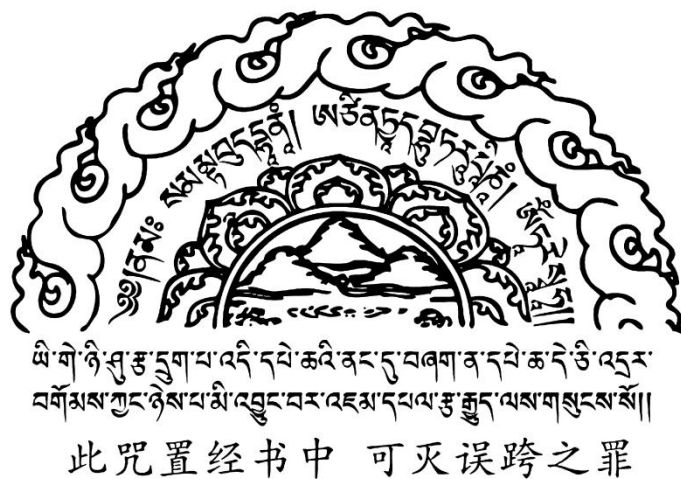 ཡི་གེ་ཉི་ཤུ་རྩ་དྲུག་པ་འདི་དཔེ་ཆའི་ནང་དུ་བཞག་ན་དཔེ་ཆ་དེ་ཅི་འདྲར་
བགོམས་ཀྱང་ཉེས་པ་མི་འབྱུང་བར་འཇམ་དཔལ་རྩ་རྒྱུད་ལས་གསུངས་སོ།།
此咒置经书中 可灭误跨之罪